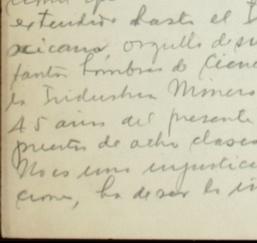 extendiose hasta el I
xicana, orgullo de su
tantos hombres de Cienc
la Industria Minera
45 años del presente
puertas de ocho clases
No es una injusticia
ha de ser la in